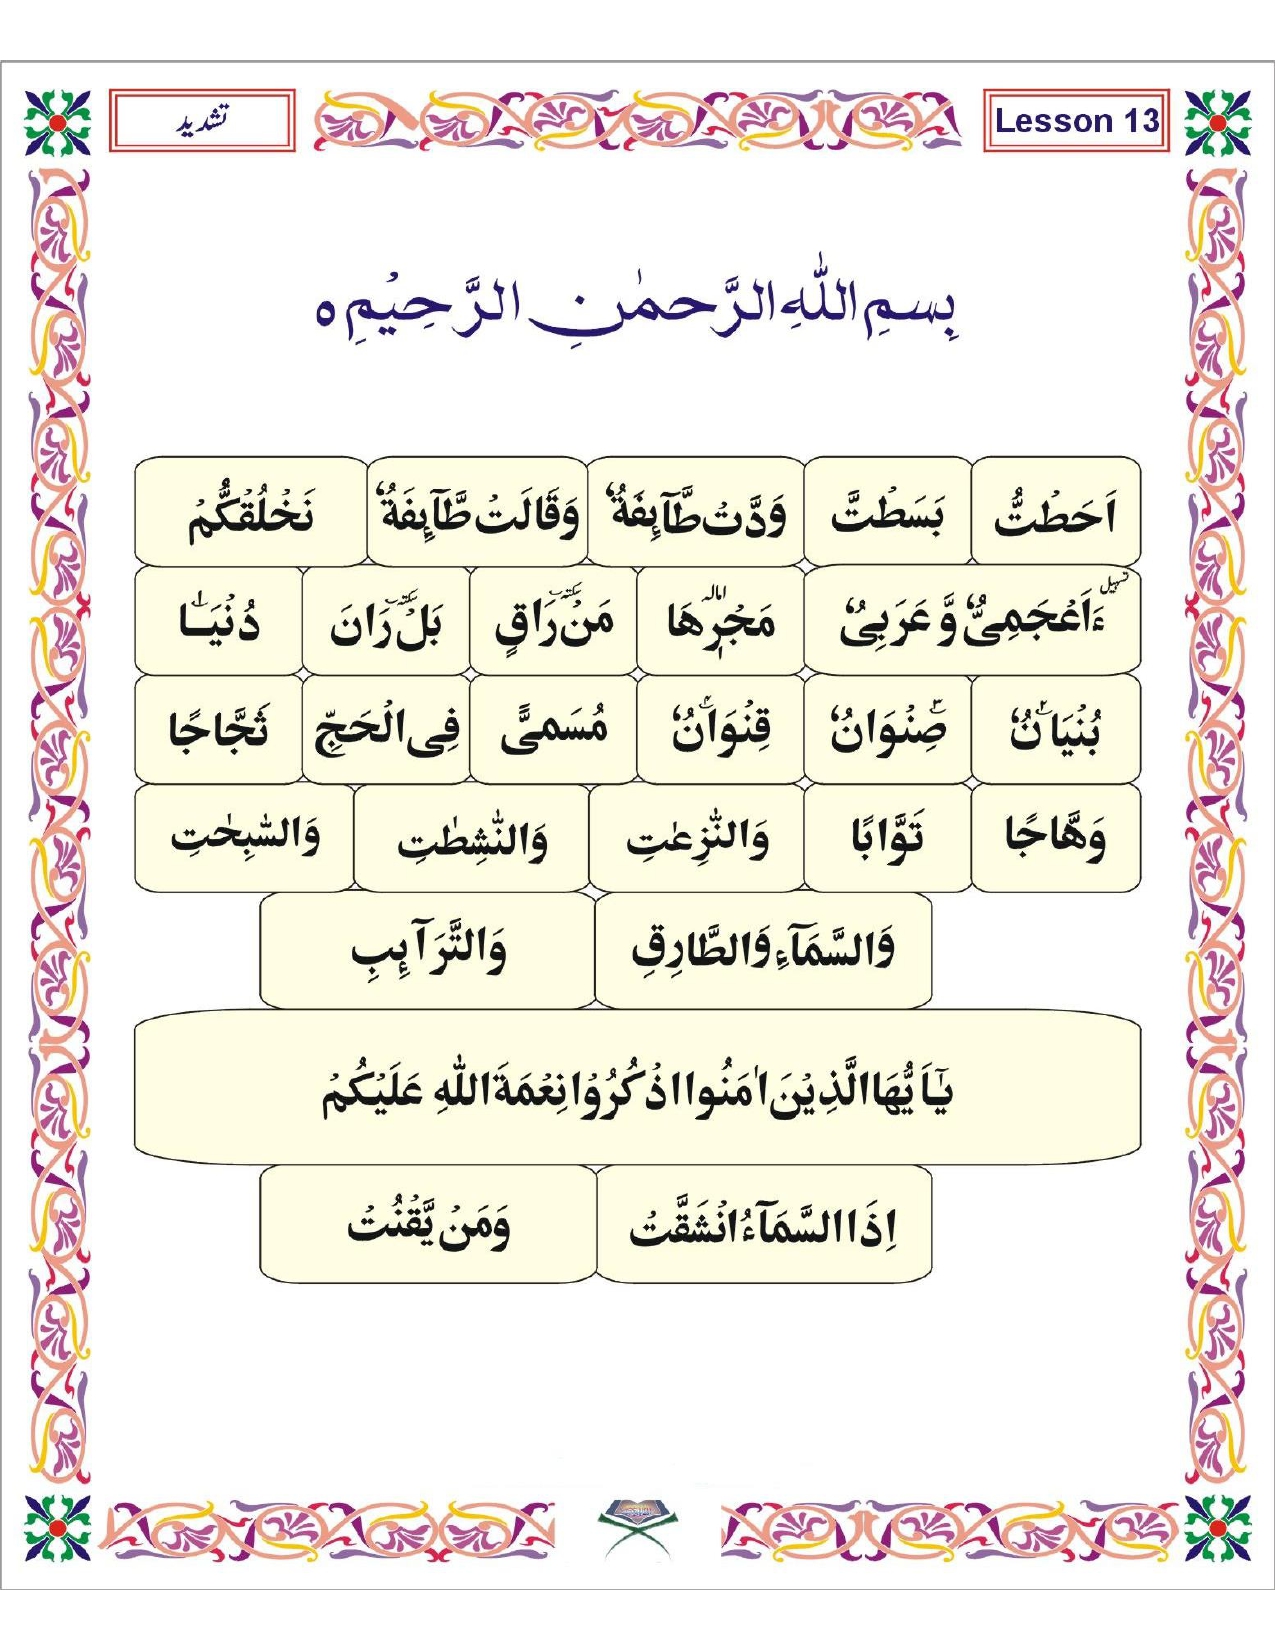 Lesson 13 تشدید
بِسمِ اللّٰهِ الرَّحمٰنِ الرَّحِیْمِ ہ
اَحَطْتُّ بَسَطْتَّ وَدَّتْ طَّآئِفَةٌ وَقَالَتْ طَّآئِفَةٌ نَخْلُقْكُّمْ
تسہیل امالہ سکتہ سکتہ
ءَاَعْجَمِیٌّ وَّ عَرَبِیٌ مَجْرٖهَا مَنْ رَاقٍ بَلْ رَانَ دُنْیَا
بُنْیَانٌ صِنْوَانٌ قِنْوَانٌ مُسَمیًّ فِی الْحَجِّ ثَجَّاجًا
وَهَّاجًا تَوَّابًا وَالنّٰزِعٰتِ وَالنّٰشِطٰتِ وَالسّٰبِحٰتِ
وَالسَّمَآءِ وَالطَّارِقِ وَالتَّرَآئِبِ
یٰٓاَیُّهَا الَّذِیْنَ اٰمَنُوا اذْكُرُوْا نِعْمَةَ اللّٰهِ عَلَیْكُمْ
اِذَا السَّمَآءُ انْشَقَّتْ وَمَنْ یَّقْنُتْ